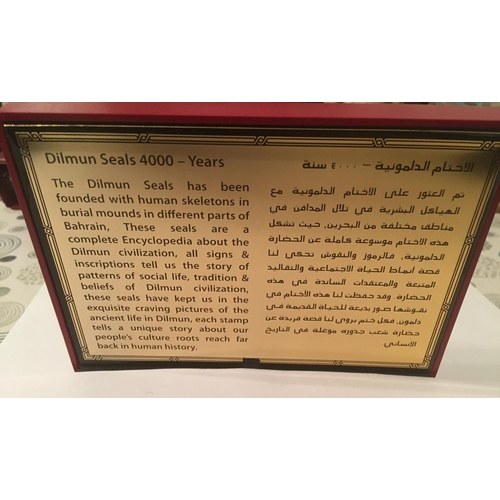 Dilmun Seals 4000 – Years
The Dilmun Seals has been
founded with human skeletons in
burial mounds in different parts of
Bahrain, These seals are a
complete Encyclopedia about the
Dilmun civilization, all signs &
inscriptions tell us the story of
patterns of social life, tradition &
beliefs of Dilmun civilization,
these seals have kept us in the
exquisite craving pictures of the
ancient life in Dilmun, each stamp
tells a unique story about our
people's culture roots reach far
back in human history.
الاختام الدلمونية – ٤٠٠٠ سنة
تم العثور على الاختام الدلمونية مع
الهياكل البشرية في تلال المدافن في
مناطق مختلفة من البحرين, حيث تشكل
هذه الاختام موسوعة كاملة عن الحضارة
الدلمونية, فالرموز والنقوش تحكي لنا
قصة أنماط الحياة الاجتماعية والتقاليد
المتبعة والمعتقدات السائدة في هذه
الحضارة. وقد حفظت لنا هذه الاختام في
نقوشها صور بديعة للحياة القديمة في
دلمون, فكل ختم يروي لنا قصة فريدة عن
حضارة شعب جذوره موغلة في التاريخ
الإنساني